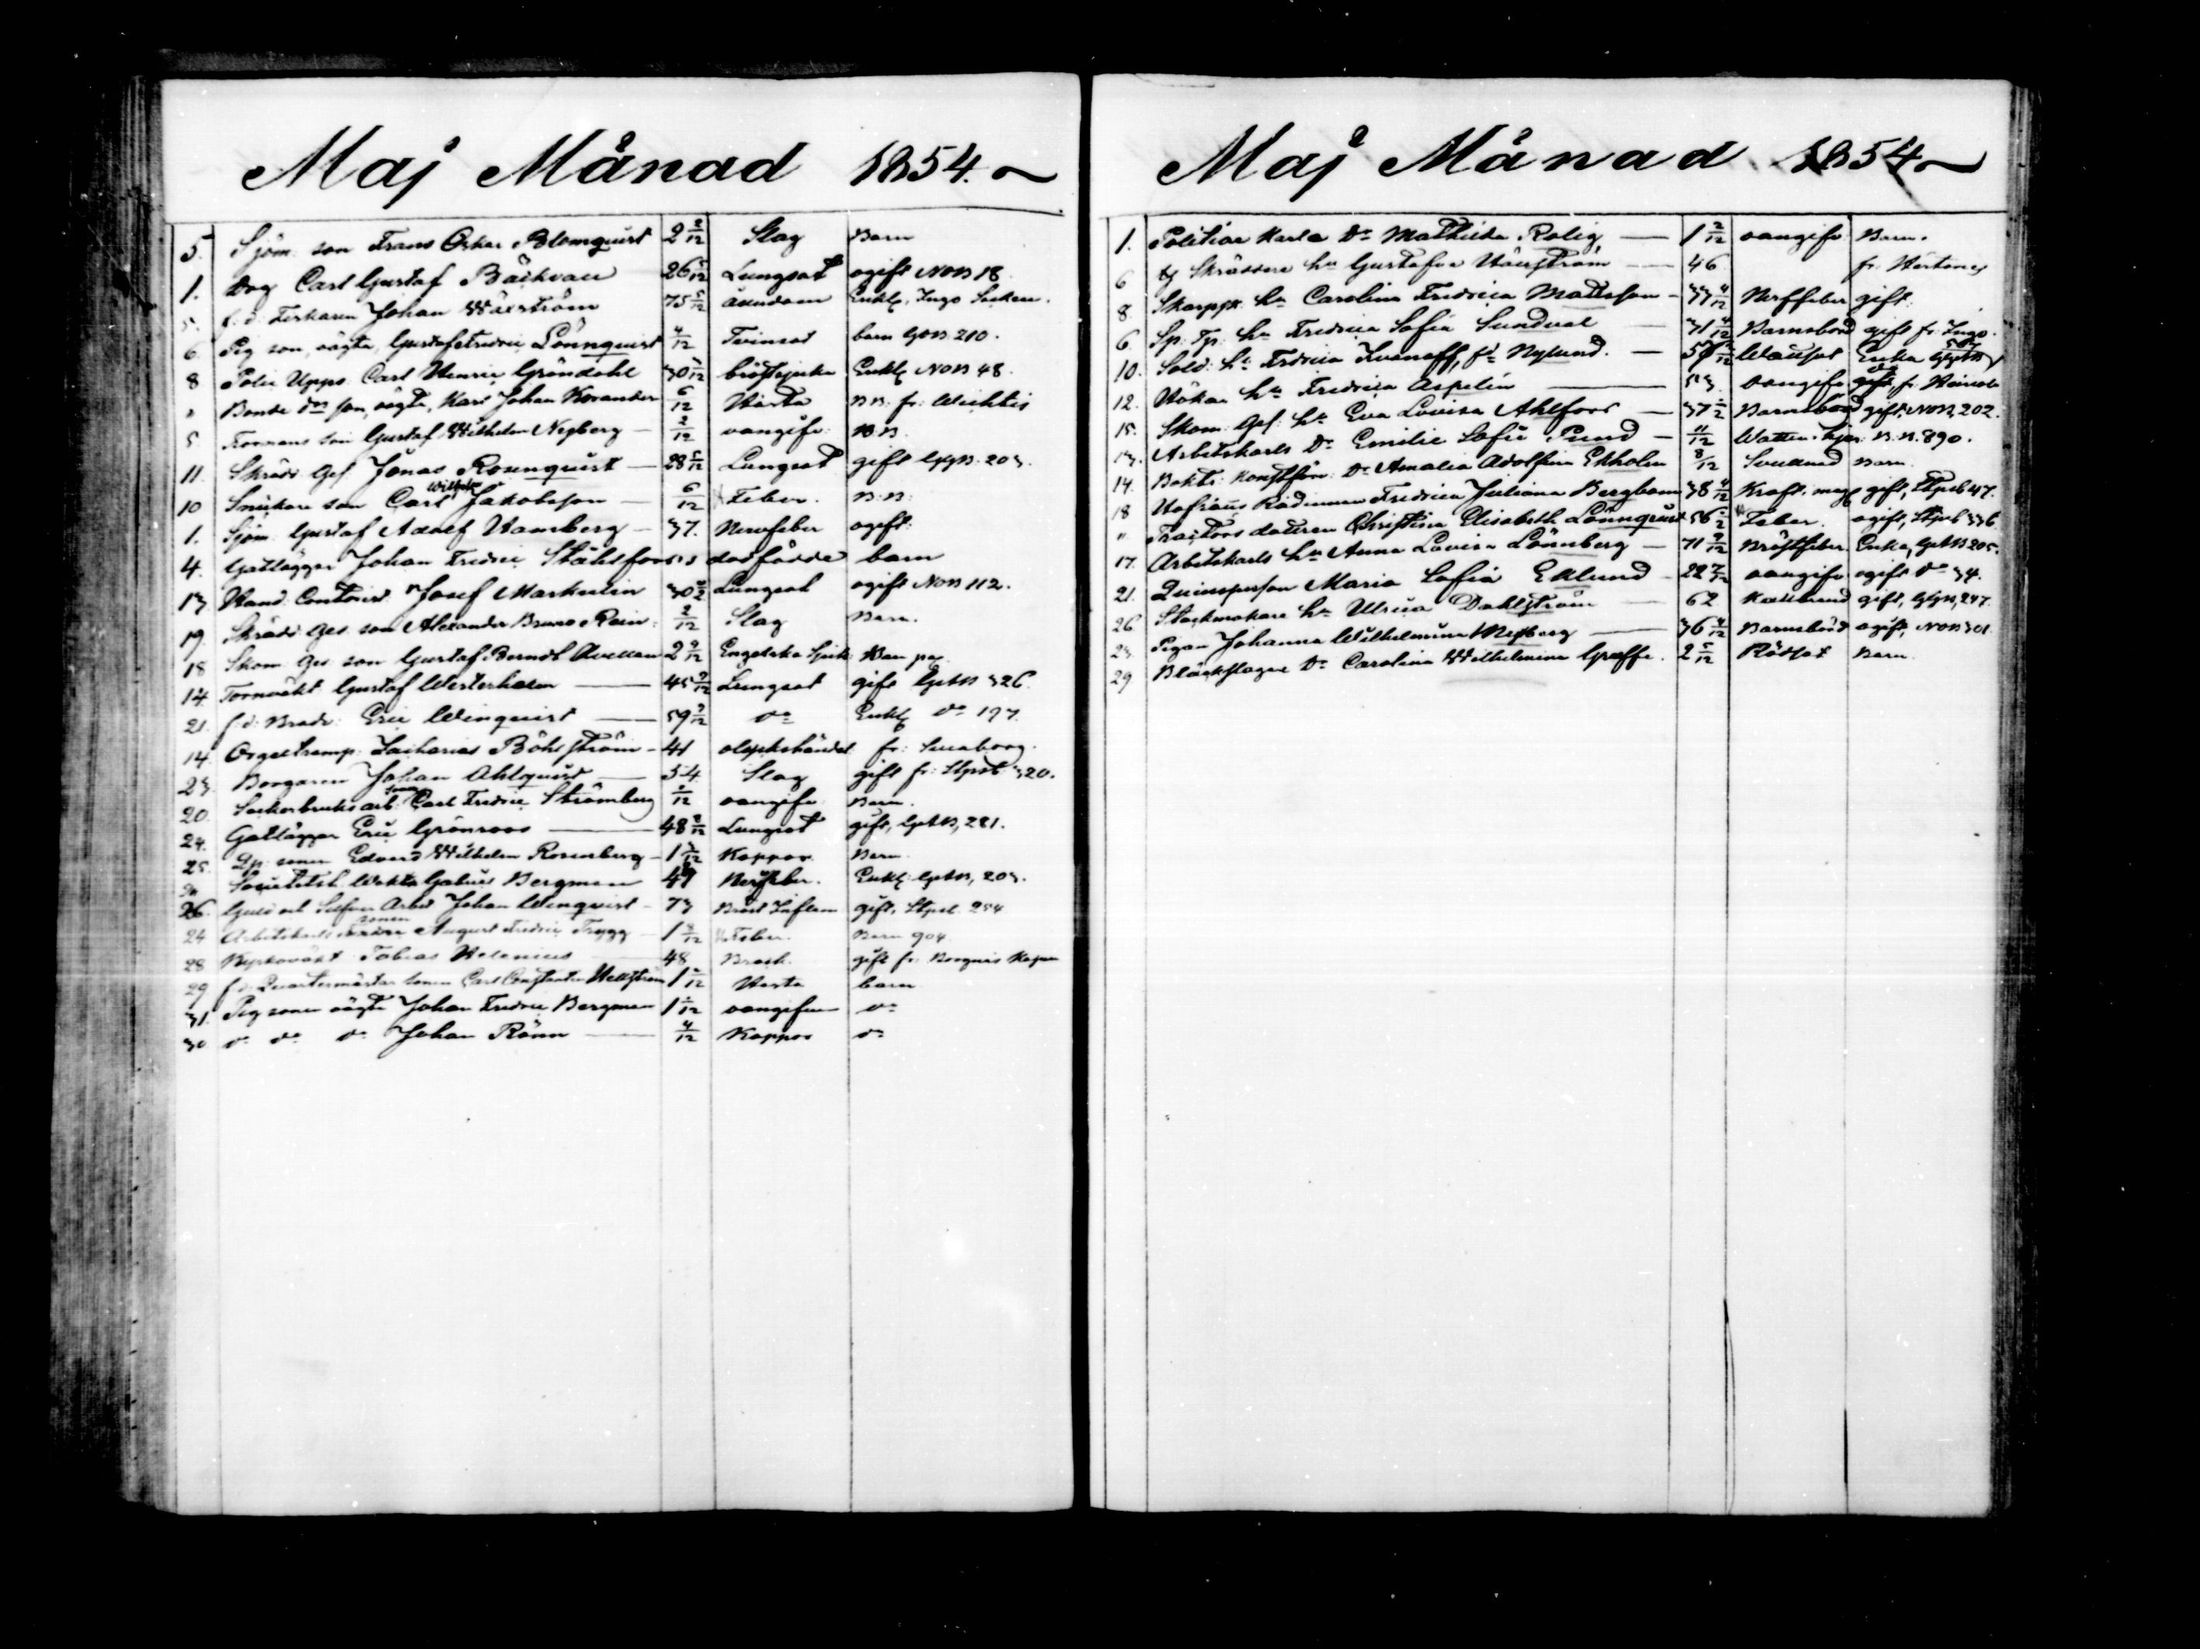 Maj Månad 1854.
5. Sjöm: son Frans Oskar Blomqvist 2 2/12 Slag Barn
1. Drg Carl Gustaf Bäckvall 26 5/12 Lungsot ogift NOB 18.
5. f. d. Fiskaren Johan Wäxström 75 5/12 ålderdom Enkl, Ingo Socken.
6. Pig son, oägta, Gustaf Fredric Lönnqvist 4/12 Tvinsot barn 210.
8 Polis Upps. Carl Henric Gröndahl 30 bröstsjuka Enkl NOB 48.
" Bonde son, oägta, Karl Johan Korander 6/12 Hosta B.B. fr: Wichtis
5 Formans son Gustaf Wilhelm Nyberg 2/12 oangifv: B.B.
11. Skrädd: Gef Jonas Rosenqvist 28 5/12 Lungsot gift 203.
10 Snickare son Carl Wilhelm Jakobsson 6/12 Feber. B.B.
1. Sjöm. Gustaf Adolf Hamberg 37. Nervfeber ogift.
4. Gatläggar Johan Fredric Ståhlfors's dödfödde barn
13 Hand: Contorist Josef Markulin 30 Lungsot ogift NOB 112.
19. Skrädd: Ges. son Alexander Bruno Rein. 2/12 Slag Barn.
18 Skom. Ges. son Gustaf Berndt Avellan 2 9/12 Engelska Sjuk:
14. Tornväkt Gustaf Westerholm 45 9/12 Lungsot gift 326.
21. f. d. Brodr: Eric Winqvist 59 9/12 do Enkl do 197.
14. Orgeltramp: Zacharias Böhlström 41 olyckshändel fr: Sveaborg.
23. Borgaren Johan Ahlqvist 54. Slag gift fr: 320.
20. Sockerbruks arb: sonen Carl Fredric Strömberg 2/12 oangifv. Barn.
24. Gatläggar Eric Grönroos 48 8/12 Lungsot gift, 281.
25. sonen Edvard Wilhelm Rosenberg 1 3/12 Koppor. Barn.
Societetsh. Wakt Bergman Nervfeber. Enkl. 203.
26. Guld och Silfver Arbet Johan Winqvist 73 Bröst Inflam gift, 254
24 Arbetskarls sonen August Fredric Trygg 1 Feber. Barn 904
28 Kyrkoväkt Tobias Helenius 48 Bråck. gift fr: Borgnäs Kapell
29 f. d. Quartermästar sonen Carl Constantin Hellström 1 Hosta barn
31. Pig sonen oägta Johan Fredric Bergman 1 oangifven do
30 do do do Johan Rönn 4/12 Koppor do
Maj Månad 1854
1. Politiae Karla Dr Mathilda Rolig 1 2/12 oangifv Barn.
6 Skräddare hu Gustafva Hänström 46 fr: Hertonäs
8 Skarpsk. hu Carolina Fredrica Mattsson 33 4/12 Nerffeber gift.
6. Sp: Tp: hu Fredrica Sofia Sundvall 31 4/12 Barnsbörd gift fr. Ingo.
10. Sold: hu Fredrica Ivanoff, fd Nylund. Wattusot Enka
12. Hökar hu Fredrica Aspelin 53. oangifv gift
15. Skom: Gef: hu Eva Lovisa Ahlfors 37 Barnsbörd gift, NOB, 202.
13. Arbetskarls Dr Emilie Sofie Pund 11/12 Watten. B.B. 890.
14. Bokts: Konstför: Dr Amalia Adolfina Ekholm 8/12 Barn.
18 Hofräus Rådinnan Fredrica Juliana Bergbom 38 4/12 Kräft. mag. gift, 47.
" Traktörs dottren Christina Elisabeth Lönnqvist 56 Feber. ogift, 336
17. Arbetskarls hu Anna Lovisa Lönnberg 71 9/12 Bröstfeber. Enka, 205.
21. Quinsperson Maria Sofia Eklund 22 7/12 oangifv ogift do 34.
26 Stockmakare hu Ulrica Dahlström 62 Kallbrand gift, 247.
23. Pigan Johanna Wilhelmina Nyberg 36 4/12 Barnsbörd ogift, NOB 301
29 Bläckslagar Dr Carolina Wilhelmina Gräffe. 2 5/12 Rödsot Barn.